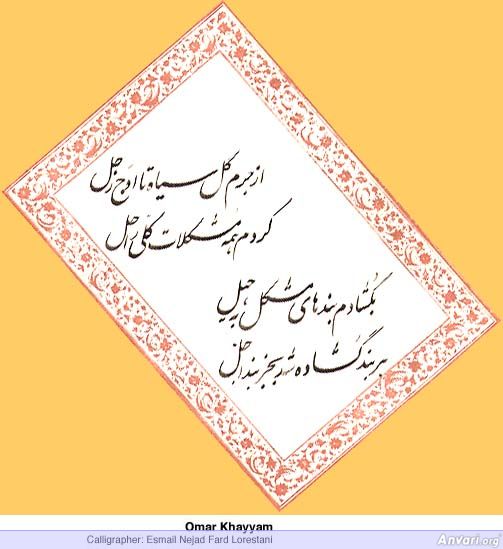 از جرم گل سیاه تا اوج زحل
کردم همه مشکلات کلی را حل
بگشادم بندهای مشکل به حیل
هر بند گشاده شد بجز بند اجل
Omar Khayyam
Calligrapher: Esmail Nejad Fard Lorestani
Anvari.org